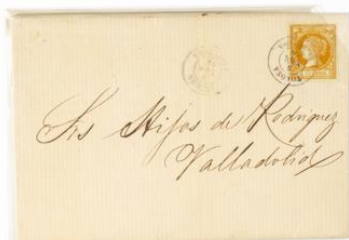 Sres Hijos de Rodriguez
Valladolid
TOLOSA